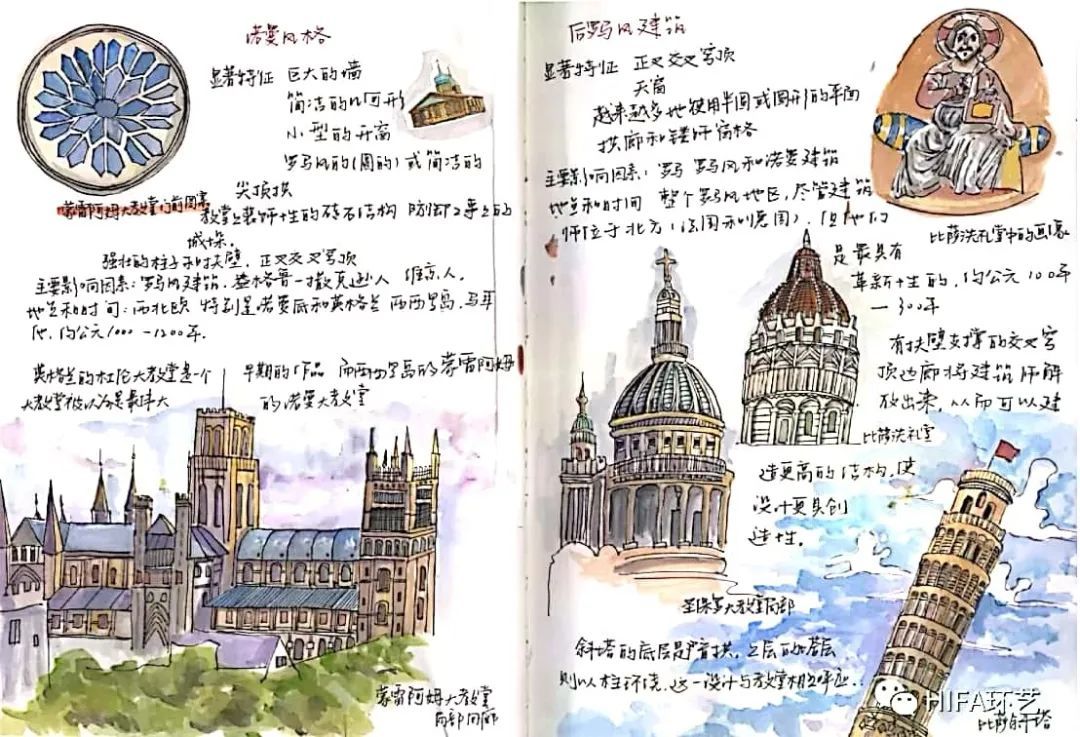 诺曼风格
显著特征 巨大的墙
简洁的几何形
小型的开窗
罗马风的(圆的)或简洁的
尖顶拱
蒙雷阿姆大教堂门前圆窗
教堂上装饰性的砖石结构 防御工事上的
城垛.
强壮的柱子和扶壁. 正叉交叉穹顶
主要影响因素: 罗马风建筑. 盎格鲁一撒克逊人 维京人.
地点和时间: 西北欧 特别是诺曼底和英格兰 西西里岛.
代. 约公元1000-1200年.
英格兰的杜伦大教堂是一个 早期的作品 而西西里岛的蒙雷阿姆
大教堂被认为是最伟大 的诺曼大教堂
蒙雷阿姆大教堂
局部回廊
后罗马风建筑
显著特征 正叉交叉穹顶
天窗
越来越多地使用半圆或圆形的平面
拱廊和镂饰窗格
主要影响因素: 罗马 罗马风和诺曼建筑
地点和时间 整个罗马风地区, 尽管建筑
师位于北方(法国和德国), 但他们
是最具有
革新性的, 约公元 100年
— 300年
比萨洗礼堂中的画像
有扶壁支撑的交叉穹
顶也廊将建筑师解
放出来, 从而可以建
比萨洗礼堂
造更高的结构, 使
设计更具创
造性.
圣保罗大教堂局部
斜塔的底层是盲拱, 上层的塔层
则以柱环绕. 这一设计与教堂相呼应..
HIFA环艺
比萨斜塔